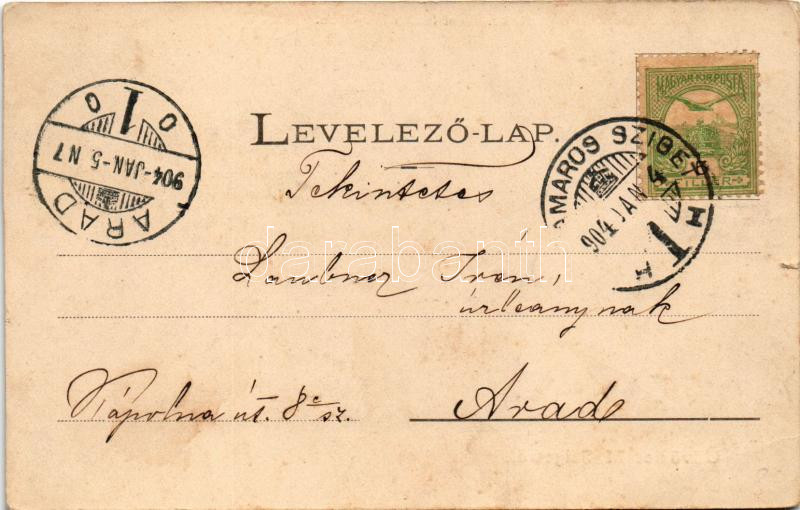 LEVELEZŐ-LAP.
ARAD
904-JAN-5. N7
MAGYAR·KIR·POSTA
MÁRAMAROS SZIGET
904 JAN 4
Tekintetes
Laubner Irén,
úrleánynak
Kápolna út. 8 sz.
Arad
darabanth